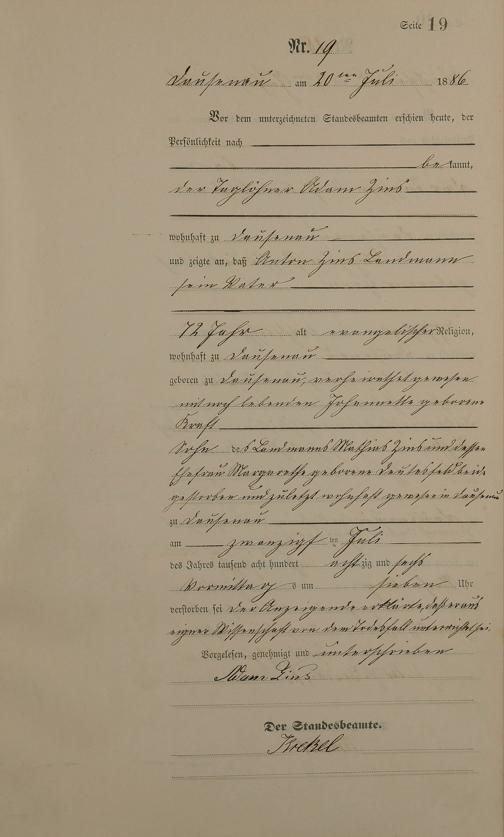 Seite 19
Nr. 19
Dausenau am 20 ten Juli 1886
Vor dem unterzeichneten Standesbeamten erschien heute, der
Persönlichkeit nach
bekannt,
der Taglöhner Adam Zins
wohnhaft zu Dausenau
und zeigte an, daß Anton Zins Landmann
sein Vater
72 Jahr alt evangelischer Religion,
wohnhaft zu Dausenau
geboren zu Dausenau, verheirathet gewesen
mit noch lebenden Johannette geborene
Kraft
Sohn des Landmanns Mathias Zins und dessen
Ehefrau Margarethe geborene beide
gestorben und zuletzt wohnhaft gewesen in Dausenau
zu Dausenau
am zwanzigsten Juli
des Jahres tausend acht hundert achtzig und sechs
Vormittags um sieben Uhr
verstorben sei Der Anzeigende erklärte, daß er aus
eigner Wissenschaft von dem Todesfall unterrichtet sei.
Vorgelesen, genehmigt und unterschrieben
Adam Zins
Der Standesbeamte.
Krekel